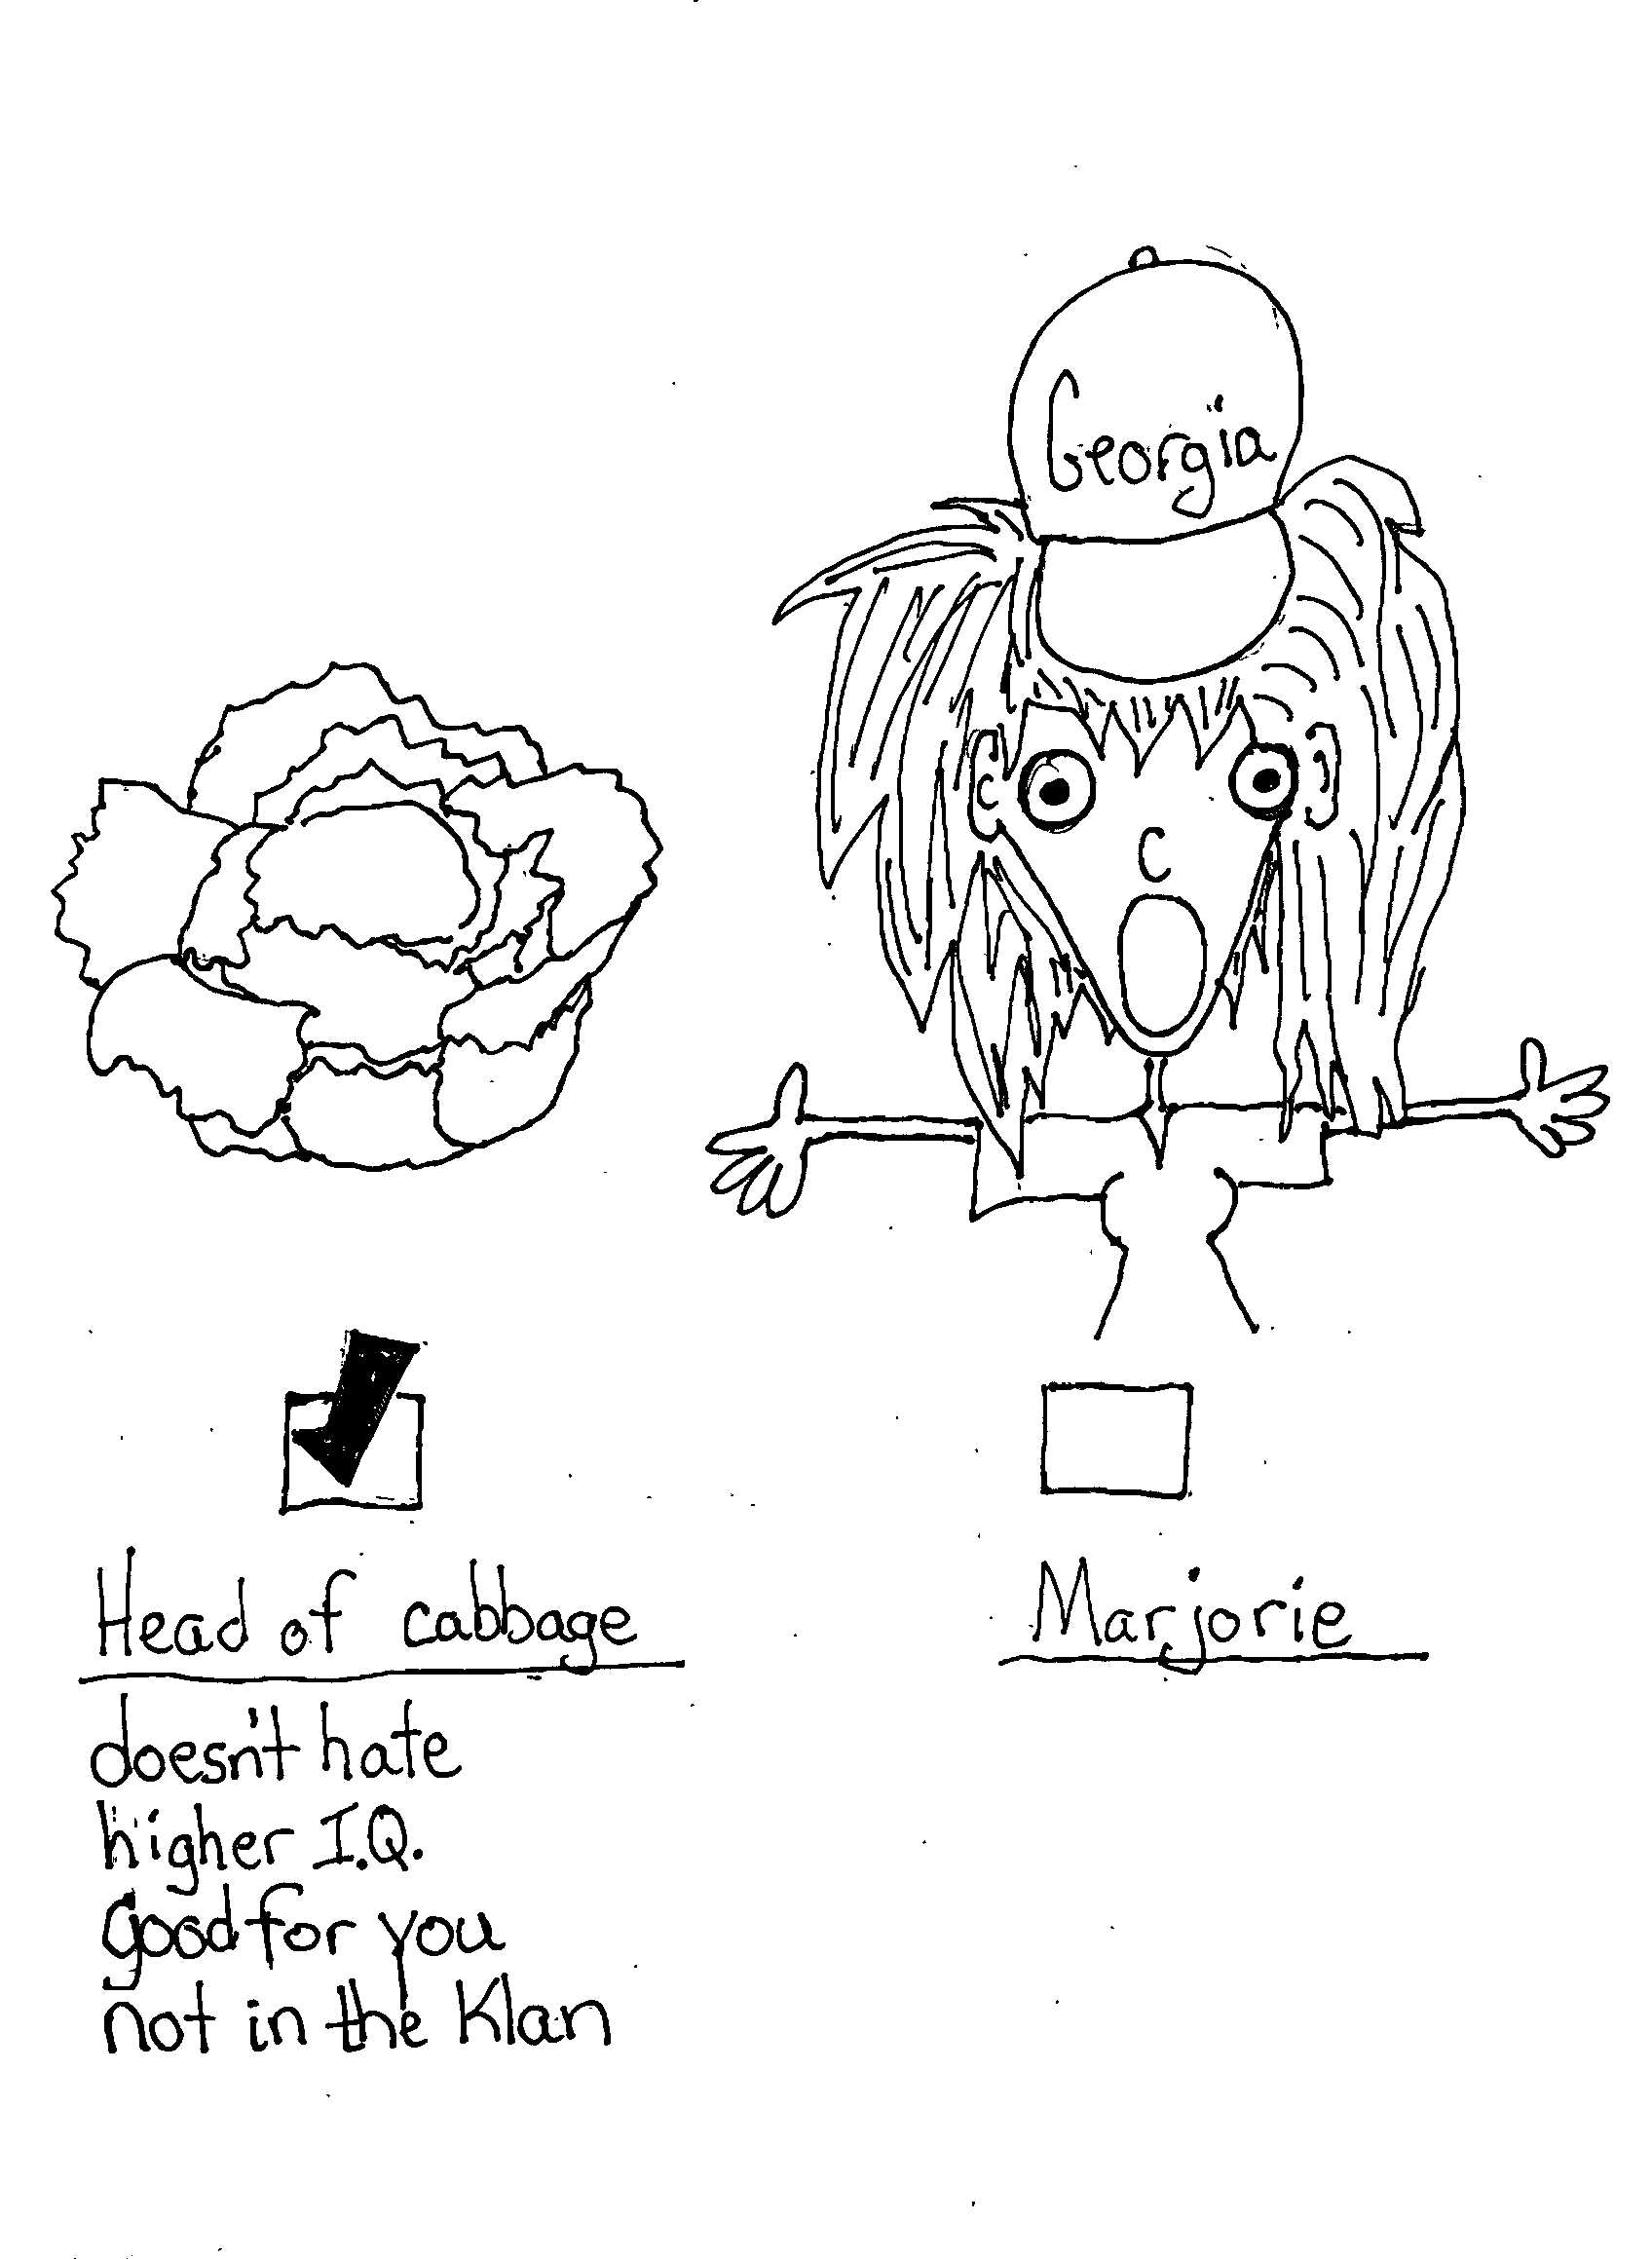 Georgia
Head of cabbage
Marjorie
doesn't hate
higher I.Q.
good for you
not in the Klan